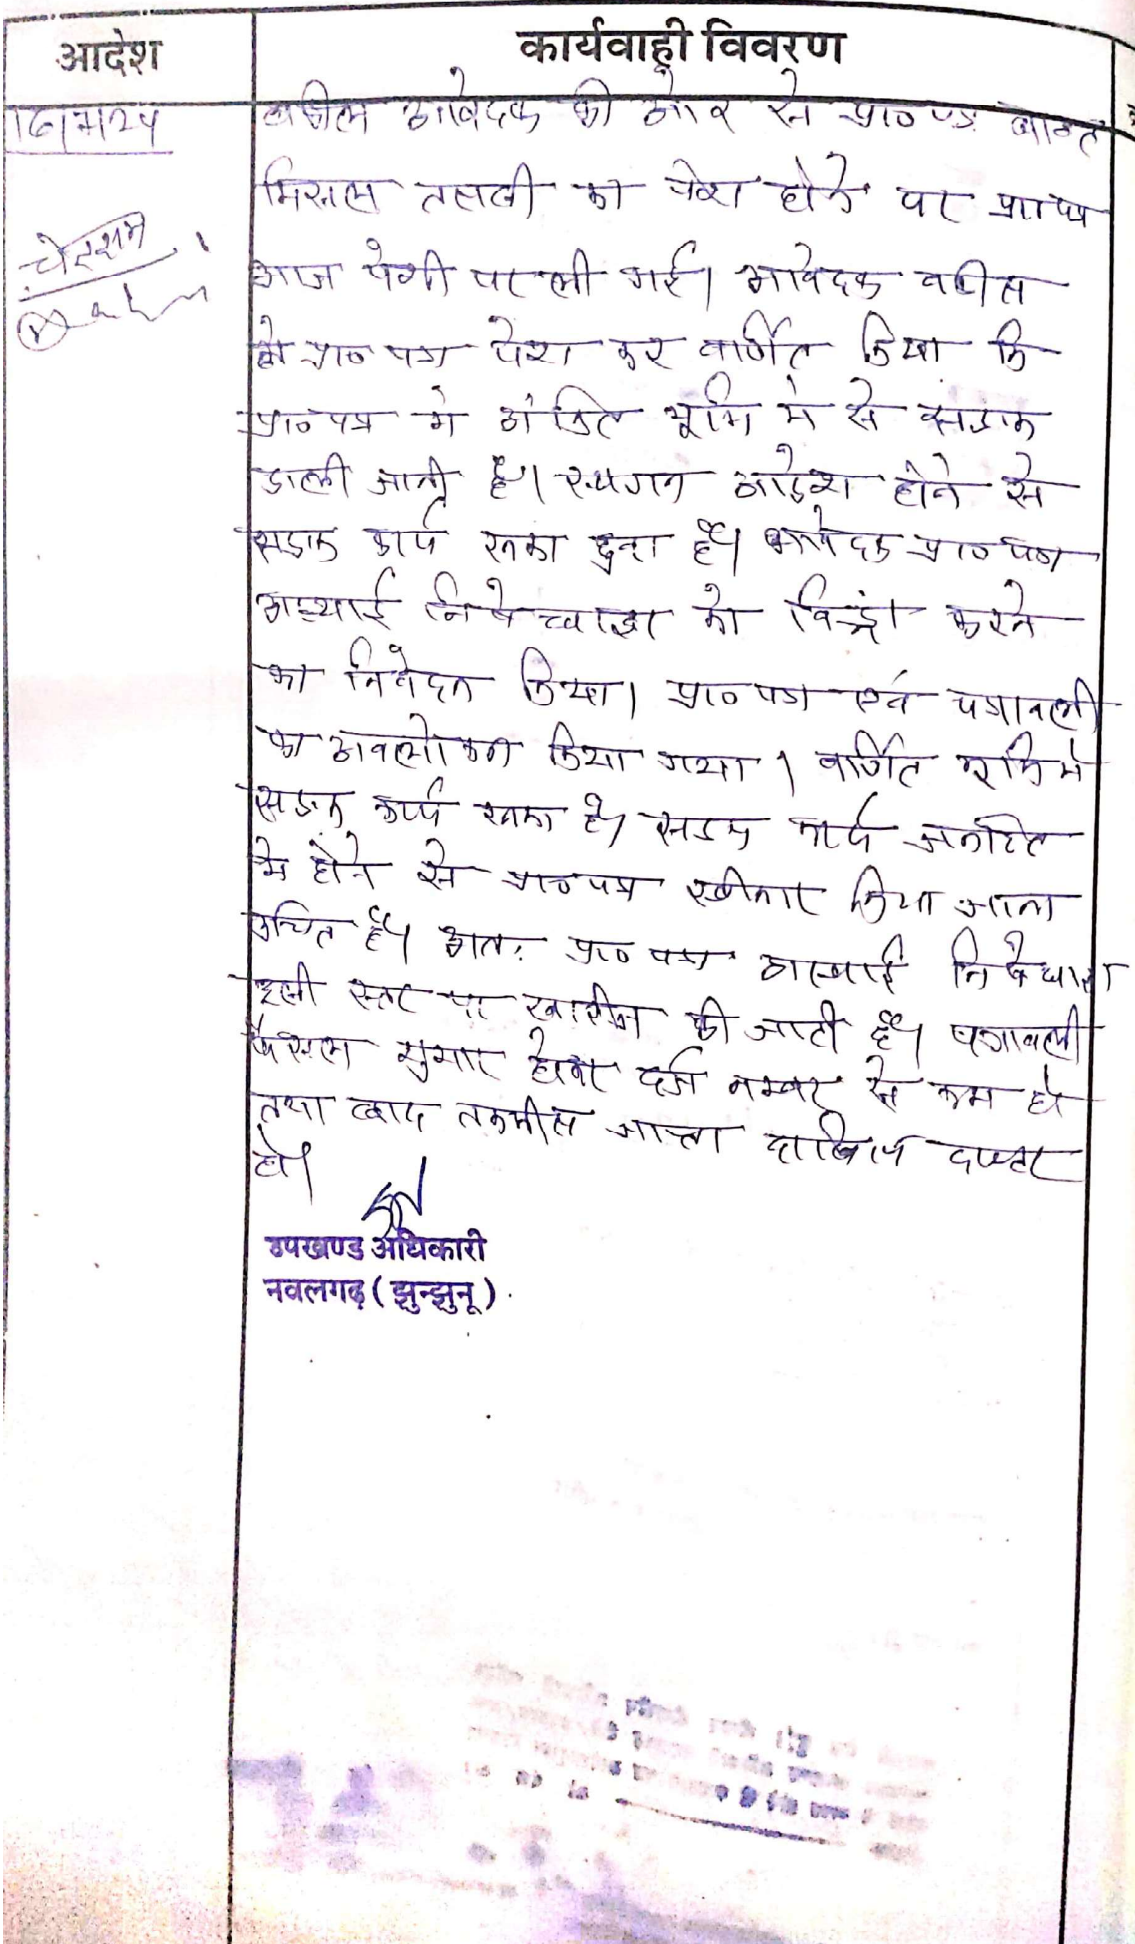 आदेश
कार्यवाही विवरण
वकील आवेदक की ओर से प्रा० पत्र बाबत
मिसल तलबी का पेश होने पर
आज पेशी पर ली गई। आवेदक वकील
ने प्रा० पत्र पेश कर वर्णित किया कि
प्रा० पत्र में अंकित भूमि में से सडक
डाली जानी है। स्थगन आदेश होने से
सडक कार्य रुका हुआ है। आवेदक प्रा० पत्र
अस्थाई निषेधाज्ञा को विड्रो करने
का निवेदन किया। प्रा० पत्र एवं पत्रावली
का अवलोकन किया गया। वर्णित भूमि में
सडक कार्य रुका है। सडक कार्य जनहित
में होने से प्रा० पत्र स्वीकार किया जाना
उचित है। अतः प्रा० पत्र अस्थाई निषेधाज्ञा
इसी स्तर पर खारीज की जाती है। पत्रावली
फैसल सुमार होकर दर्ज नम्बर से कम हो
तथा बाद तकमील जाप्ता दाखिल दफ्तर
हो।
उपखण्ड अधिकारी
नवलगढ़ (झुन्झुनू)